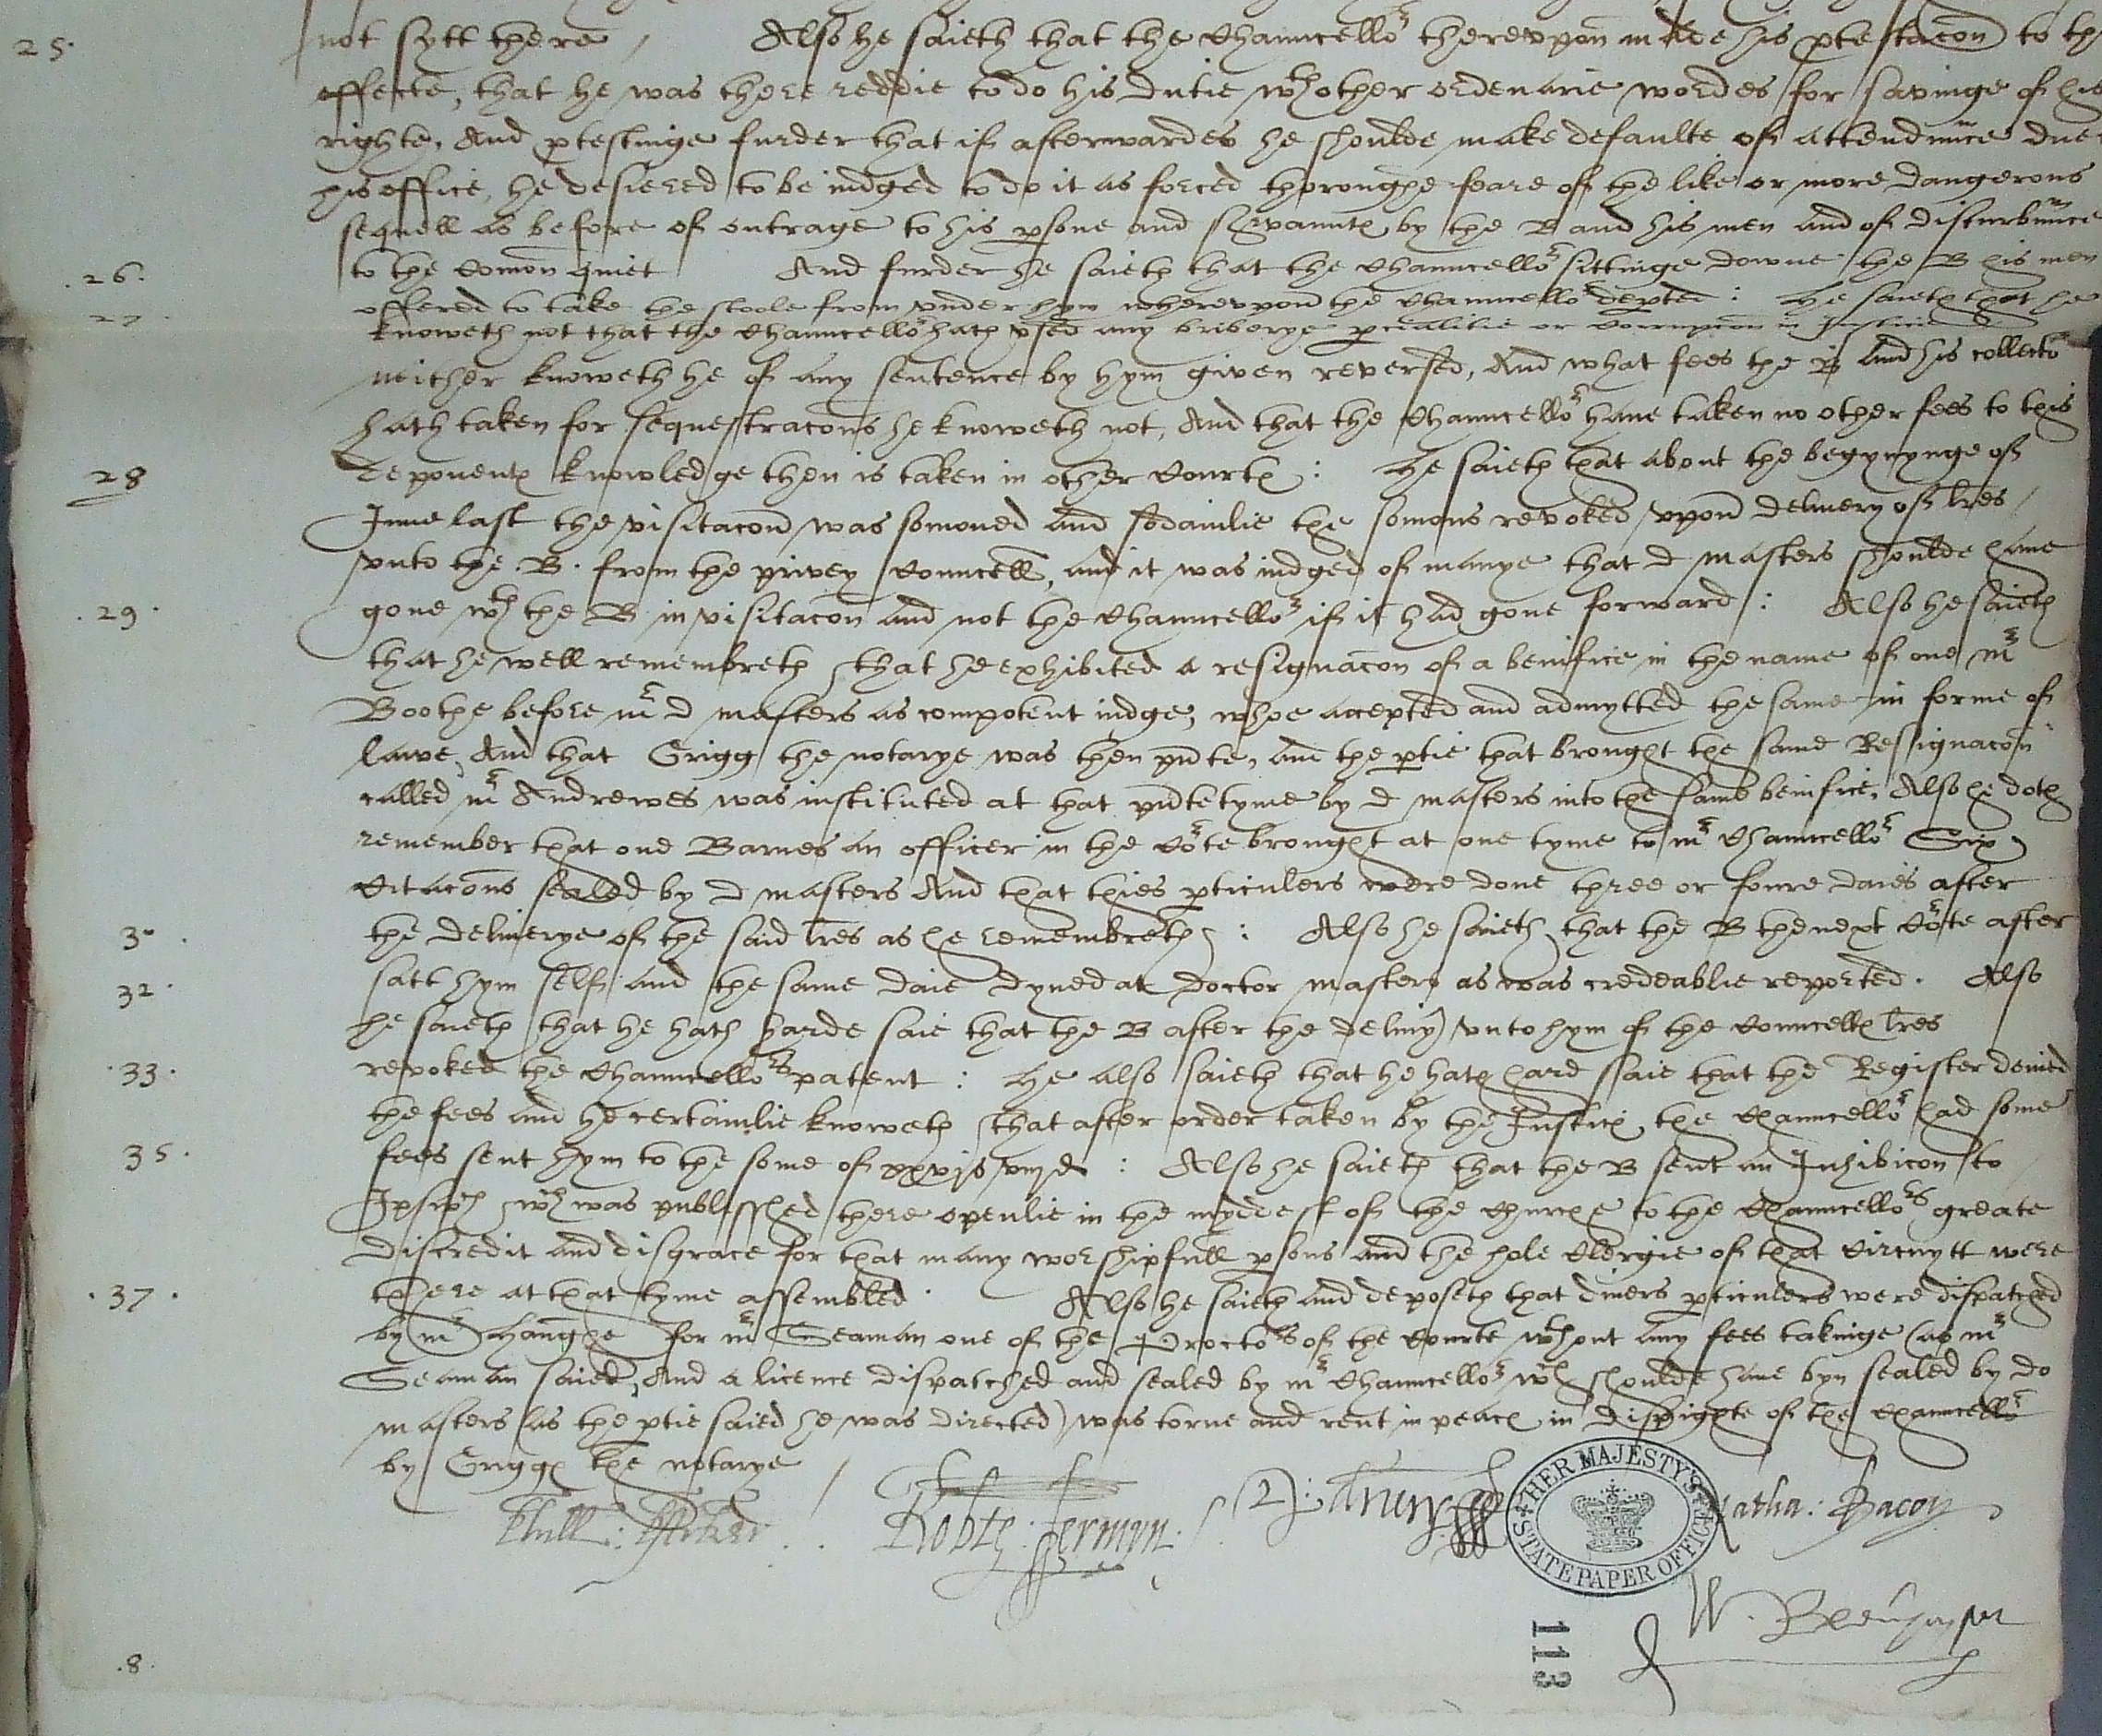 25. not sytt there / Also he saieth that the Chauncellor therevpon made his ptestacon to th
effecte, that he was there reddie to do his dutie wth other ordenarie wordes for savinge of his
righte, And ptestinge furder that if afterwardes he shoulde make defaulte of attendaunce due
his office, he desiered to be iudged to do it as forced thoroughe feare of the like or more dangerous
sequell as before of outrage to his psone and servauntes by the B and his men and of disturbaunce
.26. to the comon quiet And furder he saieth that the Chauncellor sittinge downe the B his men
offered to take the stoole from vnder hym wherevpon the Chauncellor depted : He saieth that he
27 knoweth not that the Chauncellor hath vsed any briberye pcialitie or corrupcon in Justice
neither knoweth he of any sentence by hym given reversed, And what fees the B and his collector
hath taken for sequestracons he knoweth not, And that the Chauncellor haue taken no other fees to this
28 deponentes knowledge then is taken in other Courtes : He saieth that about the begynynge of
June last the visitacon was somoned and sodainlie the somons revoked vpon deliuery of lres /
vnto the .B. from the privey Councell, and it was iudged of manye that D masters shoulde haue
.29. gone wth the B in visitacon and not the Chauncellor if it had gone forward : Also he saieth
that he well remembreth that he exhibited a resignacon of a benifice in the name of one mr
Boothe before mr D masters as competent iudge, whoe accepted and admytted the same in forme of
lawe, And that Grigg the notarye was then pnte, and the ptie that brought the same Resignacon
called mr Andrewes was instituted at that pnte tyme by D masters into the same benifice, Also he doth
remember that one Barnes an officer in the Corte brought at one tyme to mr Chauncellor Six
Citacons sealed by D masters And that thies pticulers were done three or foure daies after
30 . the deliuerye of the said lres as he remembreth : Also he saieth that the B the next Corte after
32. satt hym self and the same daie dyned at Doctor masters as was credeablie reported. Also
he saieth that he hath harde saie that the B after the deliuy vnto hym of the Councelles lres
.33. revoked the Chauncellors patent : He also saieth that he hath hard saie that the Register denied
the fees and he certainlie knoweth that after order taken by the Justices the Chauncellor had some
35. fees sent hym to the some of xxvjs viijd : Also he saieth that the B sent an Inhibicon to
Ipswch wch was publisshed there openlie in the myddest of the Churche to the Chauncellors greate
discredit and disgrace for that many worshipfull psons and the hole Clergie of that Circuytt were
.37. there at that tyme assembled. Also he saieth and deposeth that diuers pticulers were dispatched
by mr Haughe for mr Seaman one of the Proctors of the Courte wthout any fees takinge (as mr
Seaman saied, And a licence dispatched and sealed by mr Chauncellor wch shoulde haue byn sealed by do
masters (as the ptie saied he was directed) was torne and rent in peaces in dispighte of the Chauncellor
by Grigges the notarye /
Phill: Parker Robte: Jermyn. D: Drury Natha: Bacon
HER MAJESTY'S STATE PAPER OFFICE
113
.8.